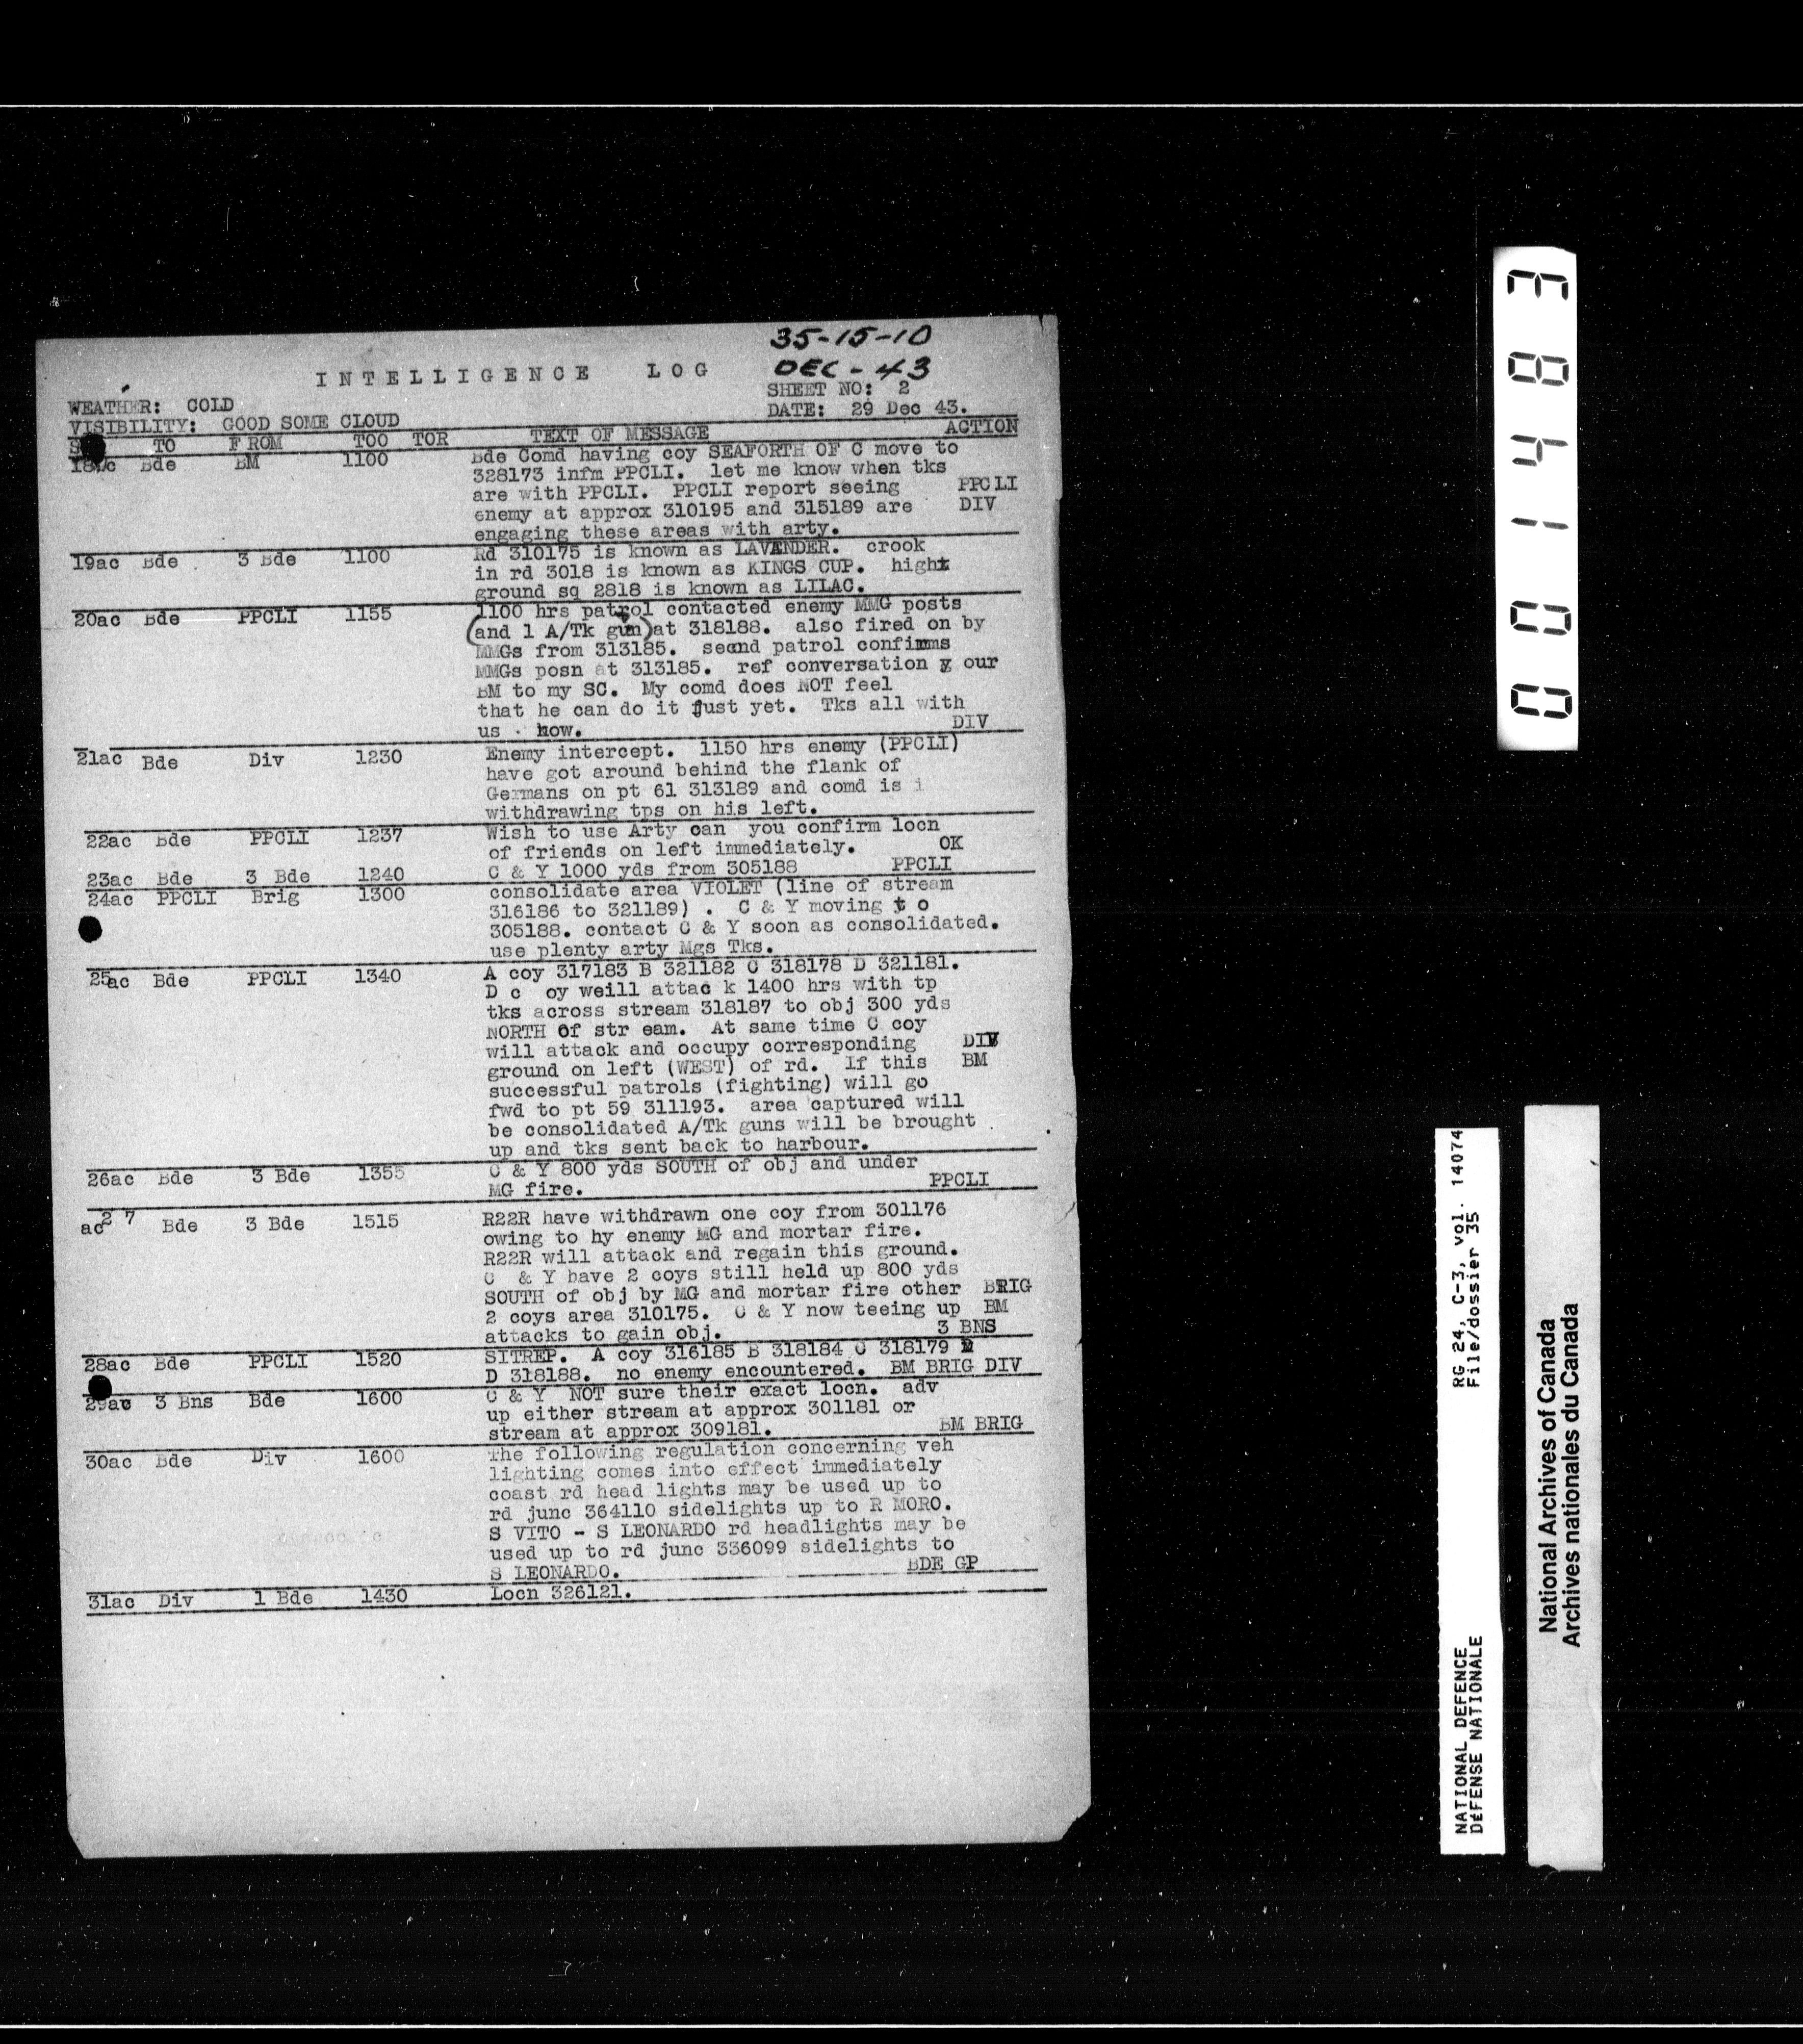 35-15-10
DEC - 43
INTELLIGENCE LOG
SHEET NO: 2
WEATHER: COLD
DATE: 29 Dec 43.
VISIBILITY: GOOD SOME CLOUD
TO FROM TOO TOR TEXT OF MESSAGE ACTION
18ac Bde BM 1100 Bde Comd having coy SEAFORTH OF C move to
328173 infm PPCLI. let me know when tks
are with PPCLI. PPCLI report seeing PPCLI
enemy at approx 310195 and 315189 are DIV
engaging these areas with arty.
19ac Bde 3 Bde 1100 Rd 310175 is known as LAVENDER. crook
in rd 3018 is known as KINGS CUP. hight
ground sq 2818 is known as LILAC.
20ac Bde PPCLI 1155 1100 hrs patrol contacted enemy MMG posts
(and 1 A/Tk gun) at 318188. also fired on by
MMGs from 313185. secnd patrol confimms
MMGs posn at 313185. ref conversation our
BM to my SC. My comd does NOT feel
that he can do it just yet. Tks all with
us now. DIV
21ac Bde Div 1230 Enemy intercept. 1150 hrs enemy (PPCLI)
have got around behind the flank of
Germans on pt 61 313189 and comd is i
withdrawing tps on his left.
22ac Bde PPCLI 1237 Wish to use Arty can you confirm locn
of friends on left immediately. OK
23ac Bde 3 Bde 1240 C & Y 1000 yds from 305188 PPCLI
24ac PPCLI Brig 1300 consolidate area VIOLET (line of stream
316186 to 321189) . C & Y moving t o
305188. contact C & Y soon as consolidated.
use plenty arty Mgs Tks.
25ac Bde PPCLI 1340 A coy 317183 B 321182 C 318178 D 321181.
D c oy weill attac k 1400 hrs with tp
tks across stream 318187 to obj 300 yds
NORTH of str eam. At same time C coy
will attack and occupy corresponding DIV
ground on left (WEST) of rd. If this BM
successful patrols (fighting) will go
fwd to pt 59 311193. area captured will
be consolidated A/Tk guns will be brought
up and tks sent back to harbour.
26ac Bde 3 Bde 1355 C & Y 800 yds SOUTH of obj and under
MG fire. PPCLI
ac2 7 Bde 3 Bde 1515 R22R have withdrawn one coy from 301176
owing to hy enemy MG and mortar fire.
R22R will attack and regain this ground.
C & Y have 2 coys still held up 800 yds
SOUTH of obj by MG and mortar fire other BRIG
2 coys area 310175. C & Y now teeing up BM
attacks to gain obj. 3 BNS
28ac Bde PPCLI 1520 SITREP. A coy 316185 B 318184 C 318179
D 318188. no enemy encountered. BM BRIG DIV
29ac 3 Bns Bde 1600 C & Y NOT sure their exact locn. adv
up either stream at approx 301181 or
stream at approx 309181. BM BRIG
30ac Bde Div 1600 The following regulation concerning veh
lighting comes into effect immediately
coast rd head lights may be used up to
rd junc 364110 sidelights up to R MORO.
S VITO - S LEONARDO rd headlights may be
used up to rd junc 336099 sidelights to
S LEONARDO. BDE GP
31ac Div 1 Bde 1430 Locn 326121.
001483
RG 24, C-3, vol. 14074
File/dossier 35
NATIONAL DEFENCE
DÉFENSE NATIONALE
National Archives of Canada
Archives nationales du Canada